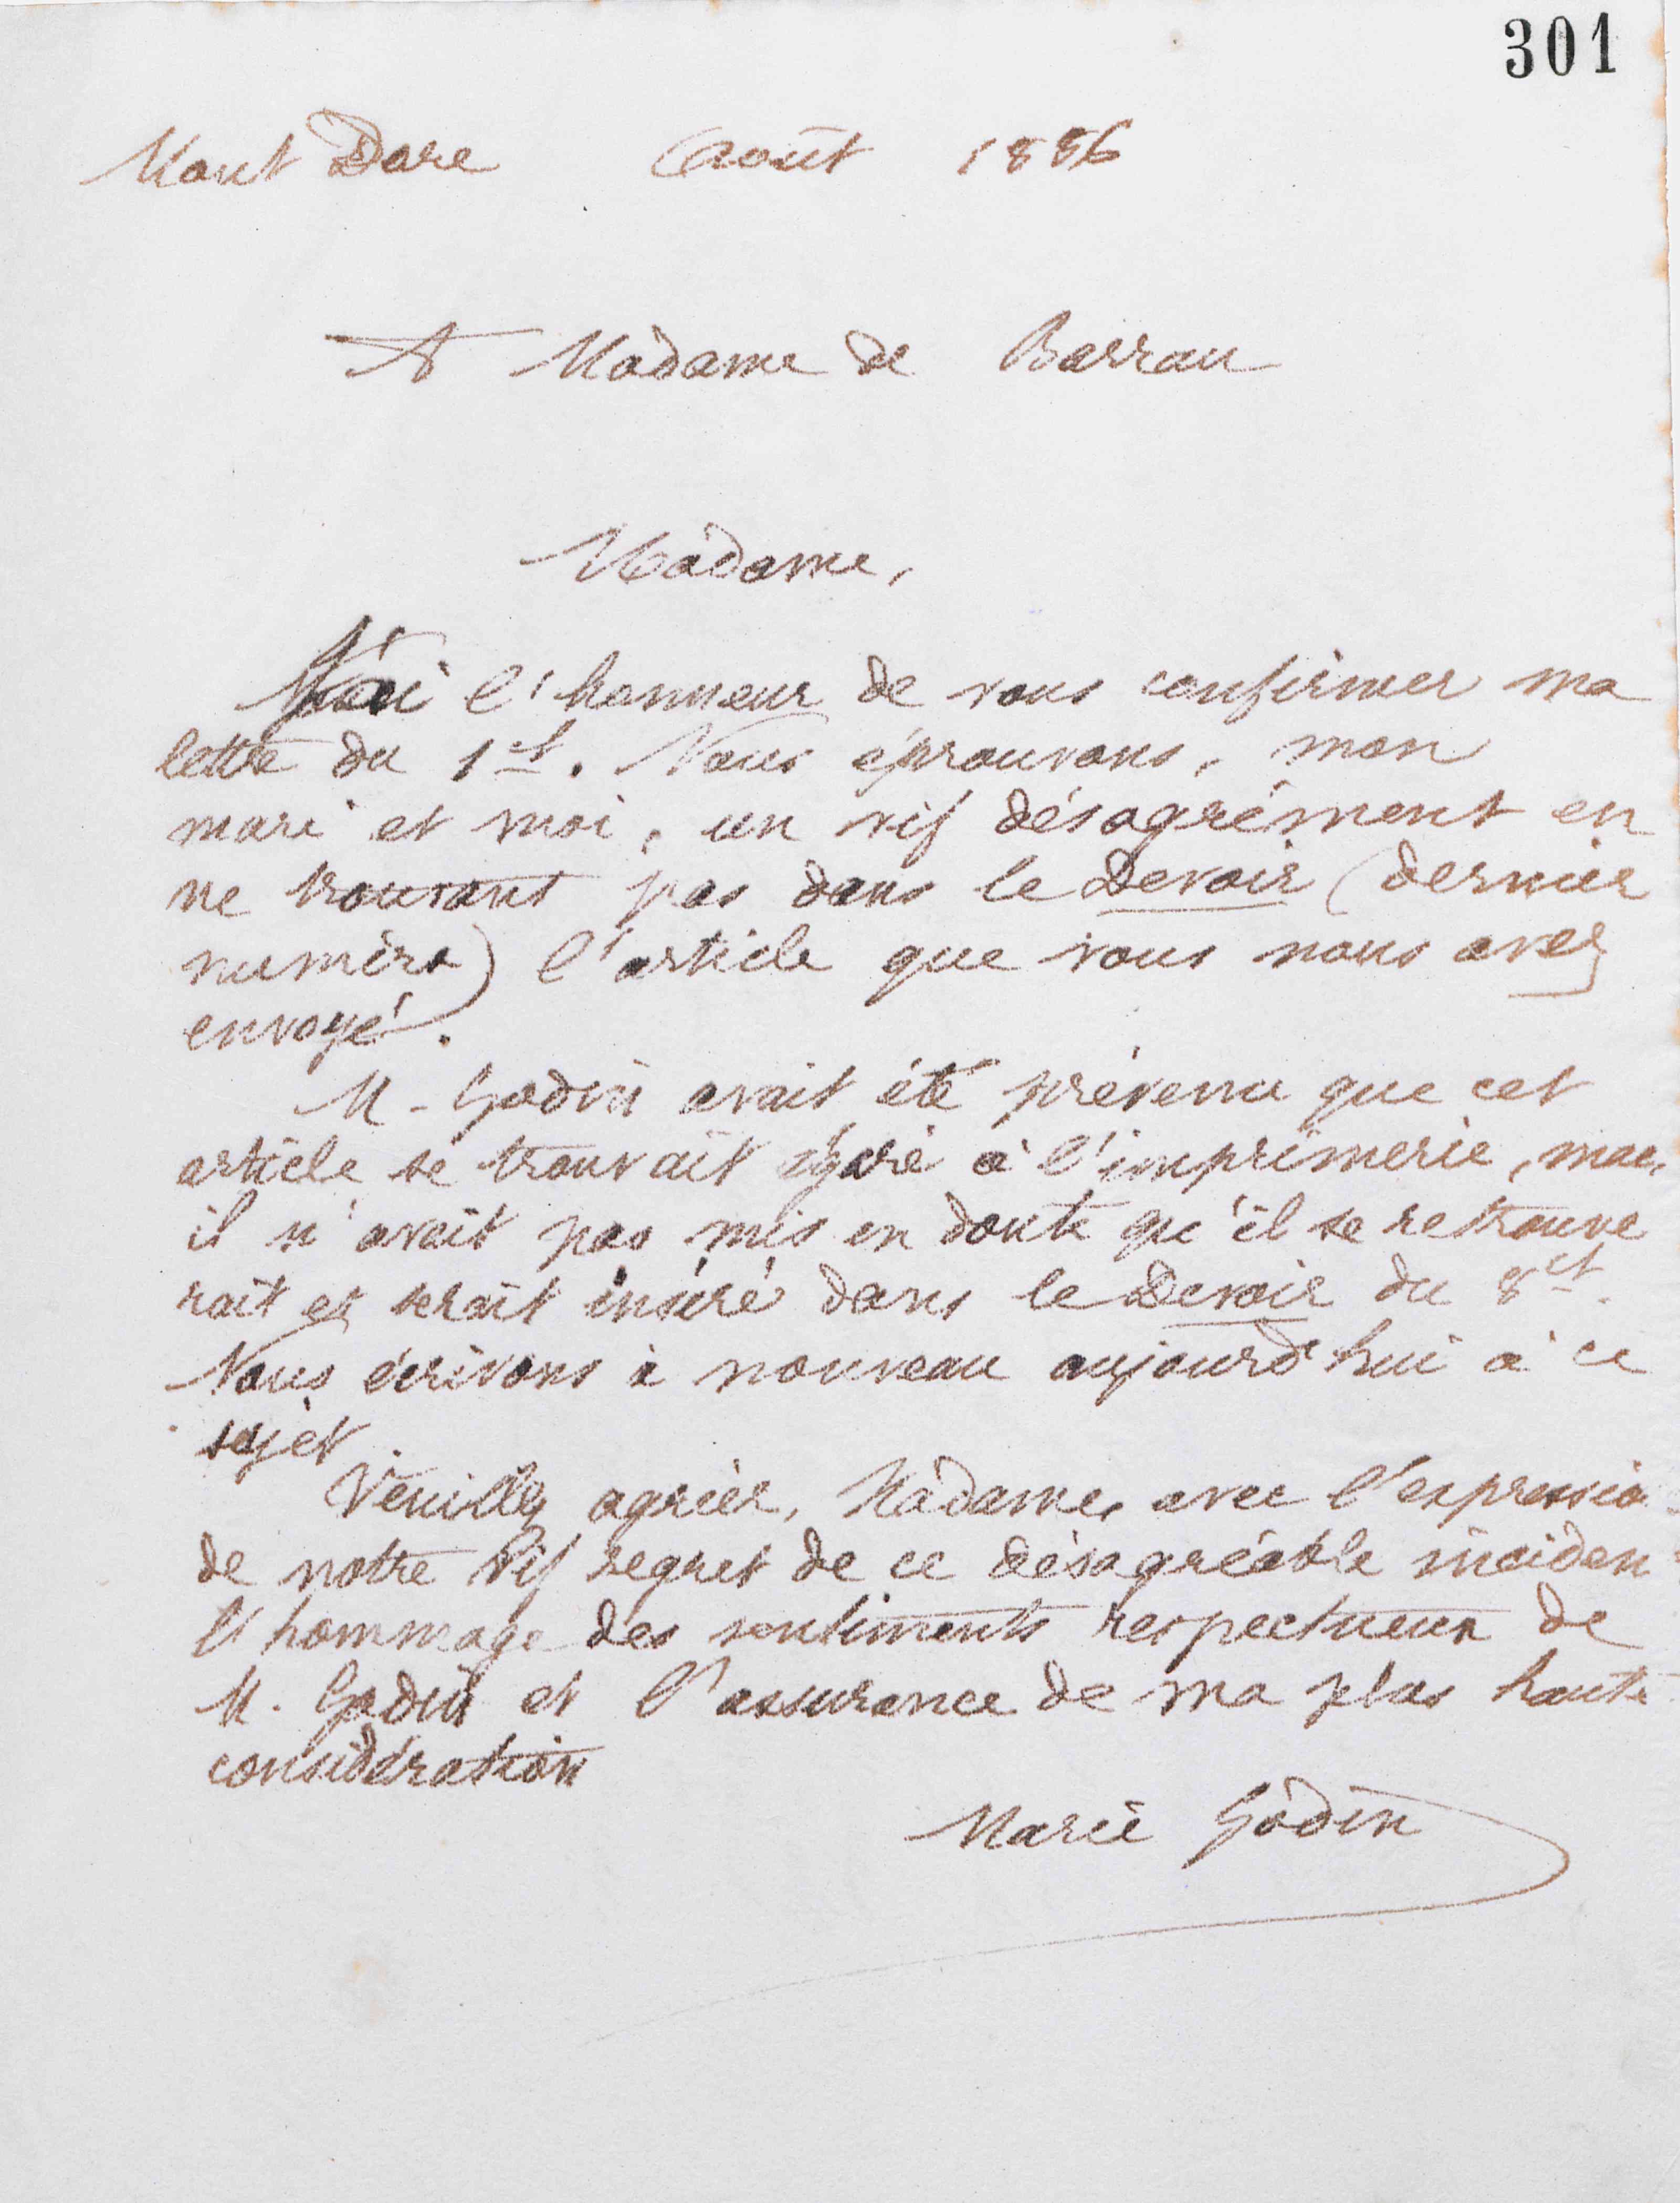 301
Mont Dore Août 1886
A Madame de Barrau
Madame,
J'ai l'honneur de vous confirmer ma
lettre du 1ct. Nous éprouvons, mon
mari et moi, un vif désagrément en
ne trouvant pas dans le Devoir (dernier
numéro) l'article que vous nous avez
envoyé.
M. Godin avait été prévenu que cet
article se trouvait égaré à l'imprimerie, mais
il n'avait pas mis en doute qu'il se retrouve
rait et serait inséré dans le Devoir du 8ct.
Nous écrivons à nouveau aujourd'hui à ce
sujet.
Veuillez agréer, Madame, avec l'expressio
de notre vif regret de ce désagréable inciden
l'hommage des sentiments respectueux de
M. Godin et l'assurance de ma plus haute
considération
Marie Godin